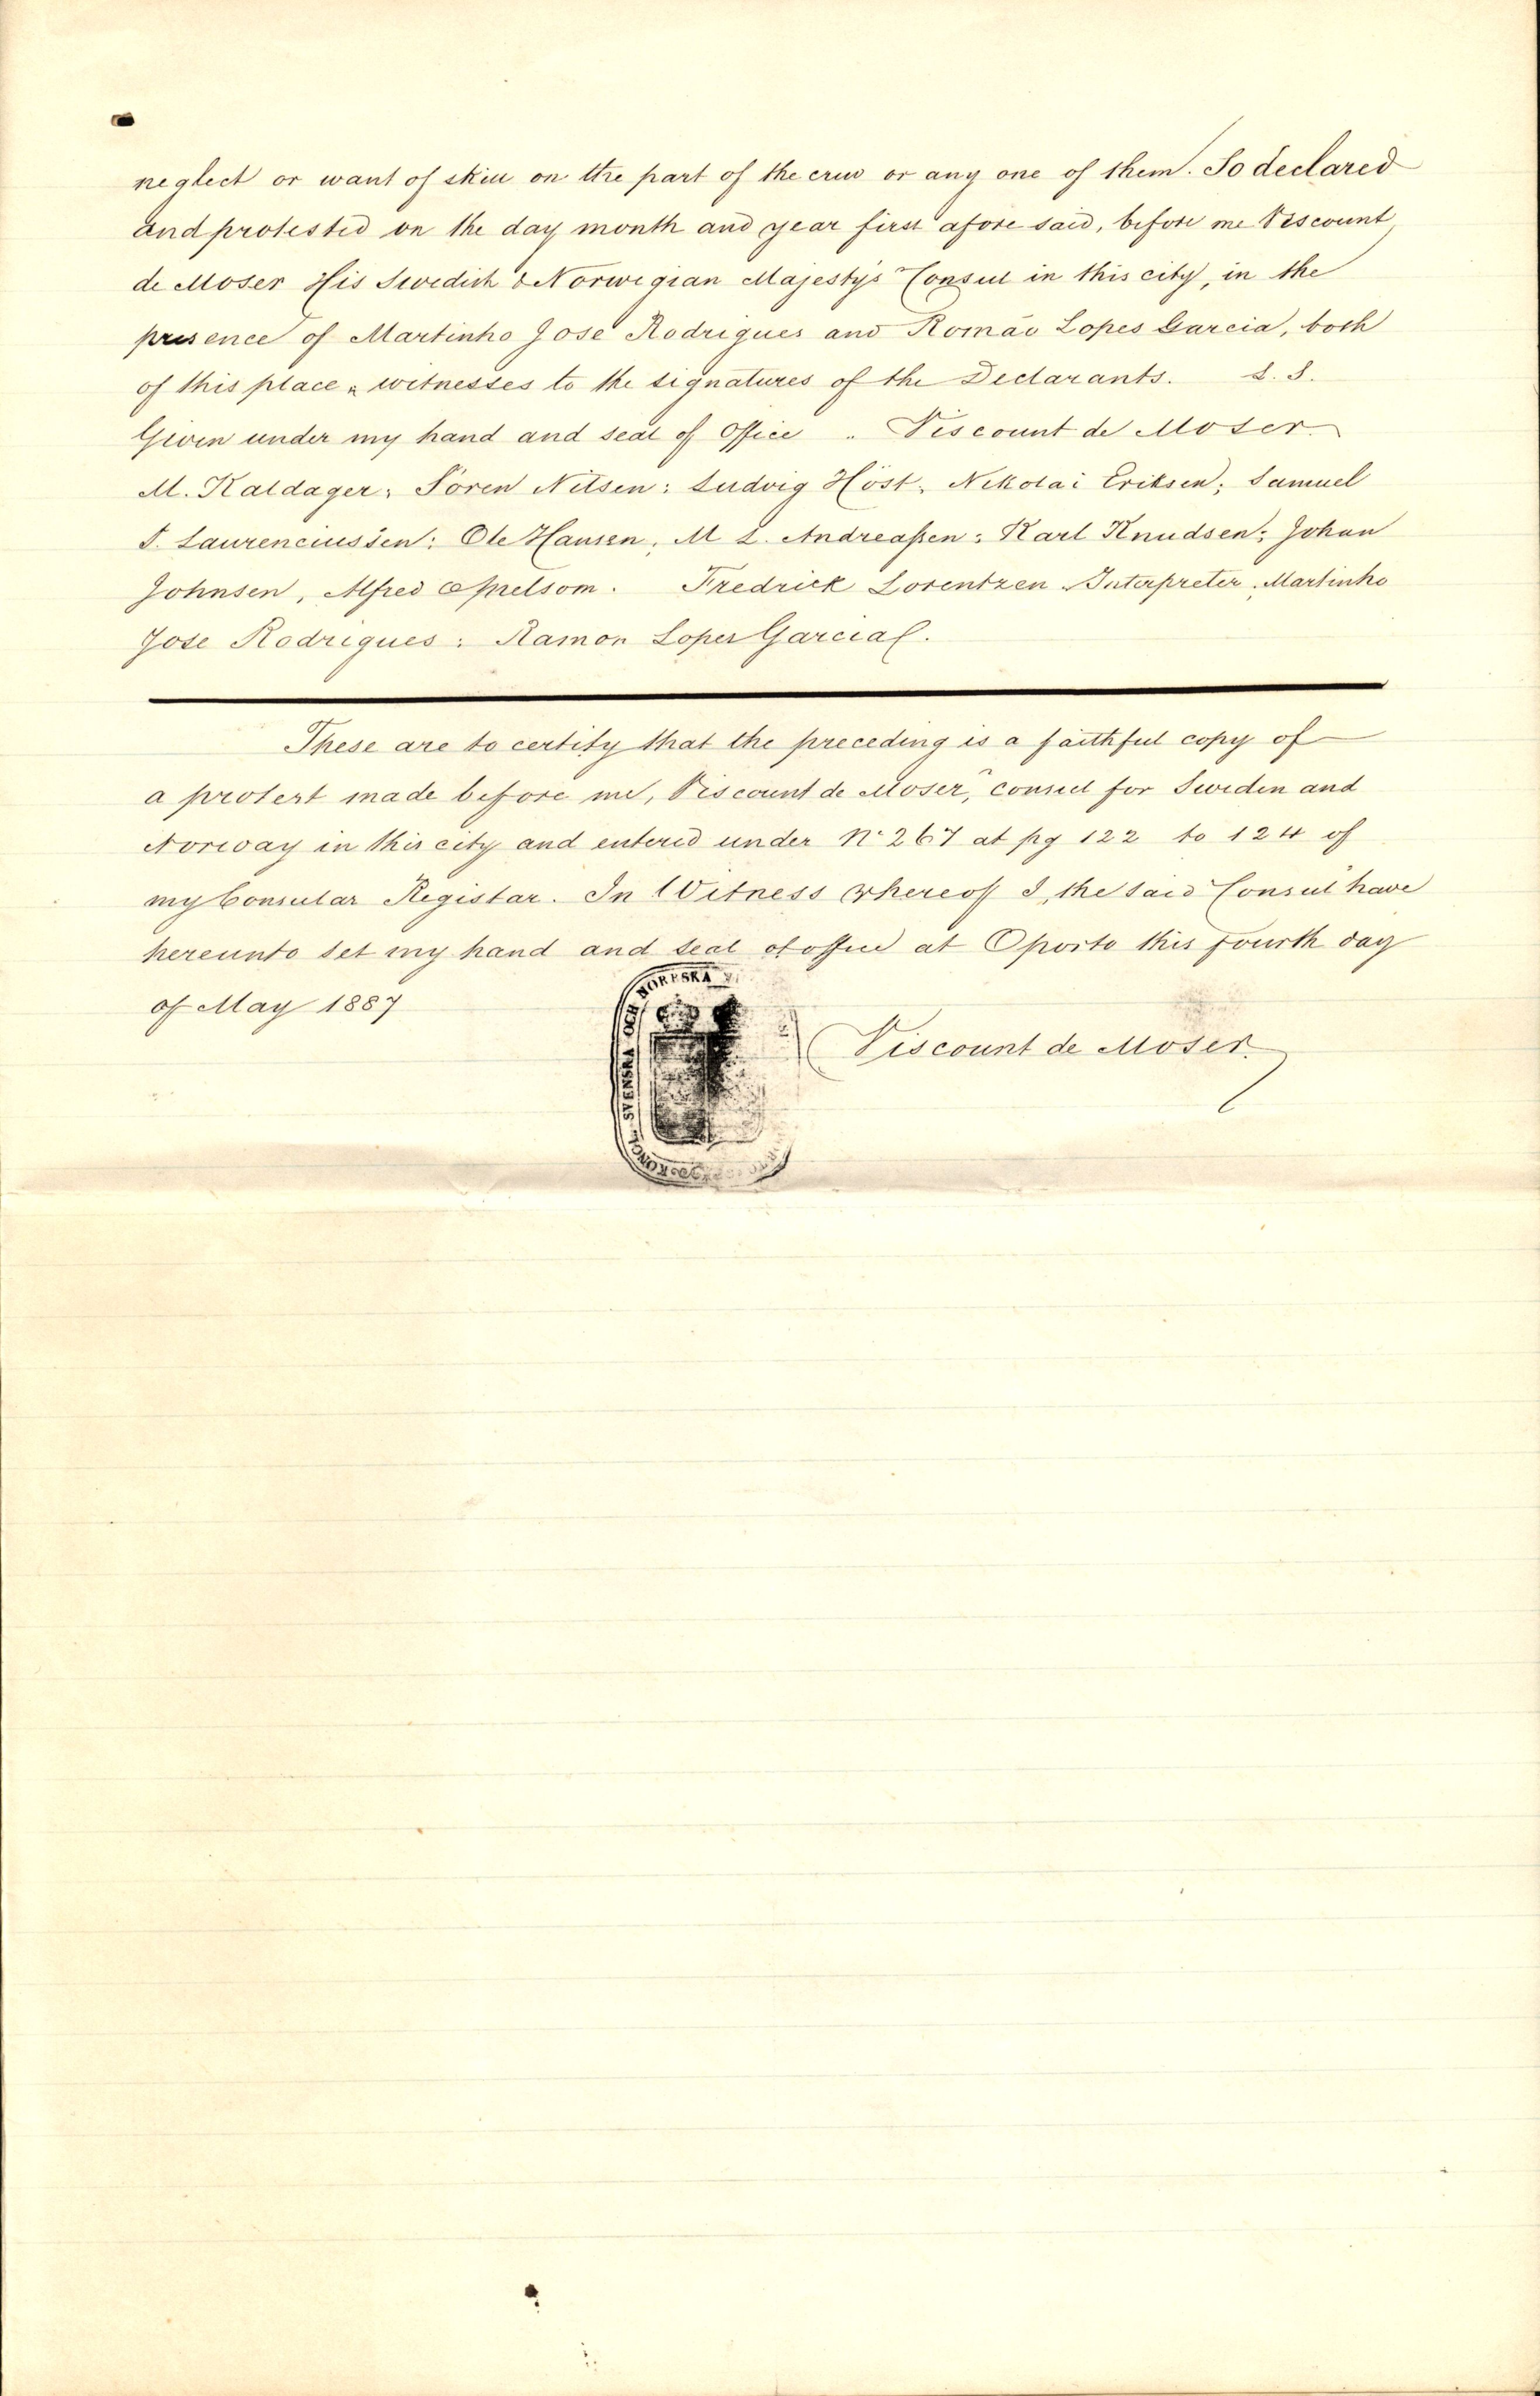 neglect or want of skill on the part of the crew or any one of them. So declared
and protested on the day month and year first afore said, before me Viscount
de Moser His Swedish & Norwegian Majesty's Consul in this city, in the
presence of Martinho Jose Rodrigues and Romão Lopes Garcia, both
of this place, witnesses to the signatures of the Declarants. L. S.
Given under my hand and seal of Office . Viscount de Moser.
M. Kaldager; Sören Nilsen: Ludvig Höst, Nikolai Eriksen; Samuel
T. Laurenciussen: Ole Hansen; M L. Andreaſsen: Karl Knudsen; Johan
Johnsen, Alfred Fredrick Lorentzen Interpreter; Martinho
Jose Rodrigues: Ramon Lopes Garcial.
These are to certify that the preceding is a faithful copy of
a protest made before me, Viscount de Moser, consul for Sweden and
Norway in this city and entered under No 267 at pg 122 to 124 of
my Consular Registar. In Witness whereof I, the said Consul have
hereunto set my hand and seal of office at Oporto this fourth day
of May 1887
SVENSKA OCH NORRSKA
Viscount de Moser.